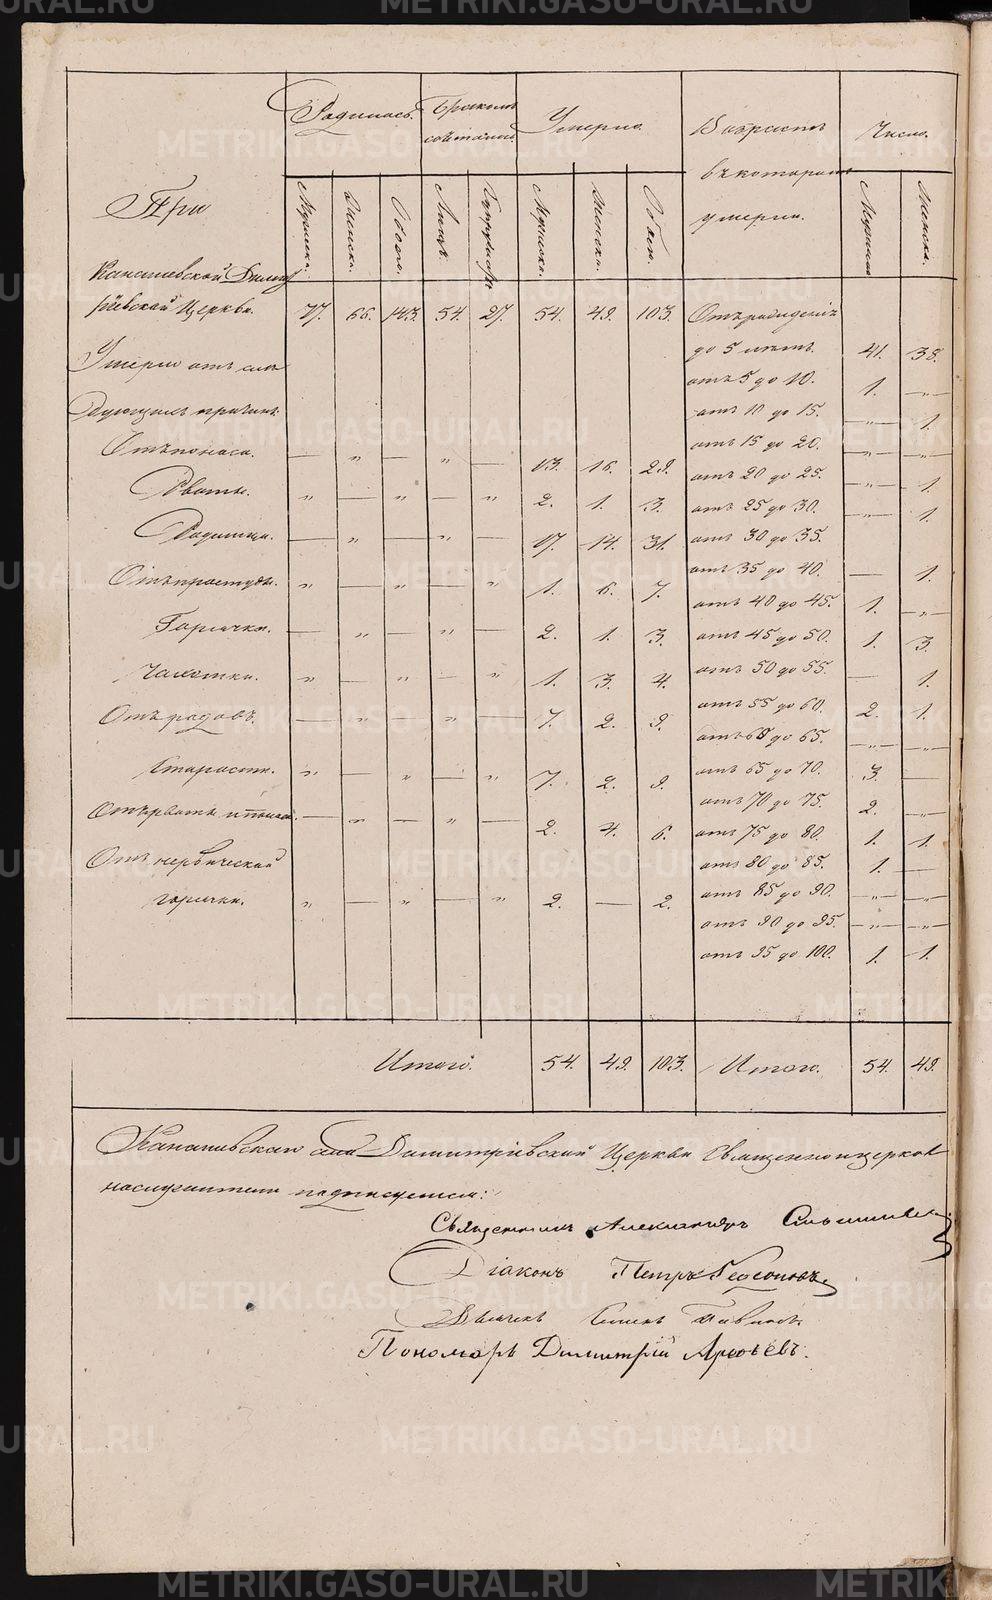 METRIKI.GASO-URAL.RU
Родилось. Бракомъ сочетались Умерло. Возрастъ въ которомъ умерли. Число.
Мужеска. Женска. Обоего. Лицъ. Супружествъ Мужеска. Женска. Обоего. Мужеска Женска.
При
Канашевской Димитріевской Церкви. 77. 66. 143. 54. 27. 54. 49. 103. Отъ рожденія до 5 лѣтъ. 41. 38.
Умерли отъ слѣдующихъ причинъ.
отъ 5 до 10. 1. — „ —
отъ 10 до 15. — „ — 1.
Отъ поноса. — „ — „ — 13. 16. 29. отъ 15 до 20. — „ — — „ —
Рвоты. „ — „ — „ 2. 1. 3. отъ 20 до 25. — „ — 1.
отъ 25 до 30. — „ — 1.
Родимца. — „ — „ — 17. 14. 31. отъ 30 до 35.
Отъ простуды. „ — „ — „ 1. 6. 7. отъ 35 до 40. — 1.
отъ 40 до 45. 1. „
Горячки. — „ — „ — 2. 1. 3. отъ 45 до 50. 1. 3.
Чахотки. „ — „ — „ 1. 3. 4. отъ 50 до 55. — 1.
отъ 55 до 60. 2. 1.
Отъ родовъ. — „ — „ — 7. 2. 9. отъ 60 до 65. — „ — — „ —
Старости. „ — „ — „ 7. 2. 9. отъ 65 до 70. 3. —
отъ 70 до 75. 2. — „ —
Отъ рвоты и поноса. — „ — „ — 2. 4. 6. отъ 75 до 80. 1. 1.
Отъ нервической горячки. „ — „ — „ 2. — 2. отъ 80 до 85. 1. —
отъ 85 до 90. — „ — — „ —
отъ 90 до 95. — „ — — „ —
отъ 95 до 100. 1. 1.
Итого. 54. 49. 103. Итого. 54. 49.
Канашевскаго села Димитріевской Церкви Священноцерковнослужители подписуемся:
Священникъ Александръ
Діаконъ Петръ
Дьячекъ
Пономарь Димитрій Арефьевъ.